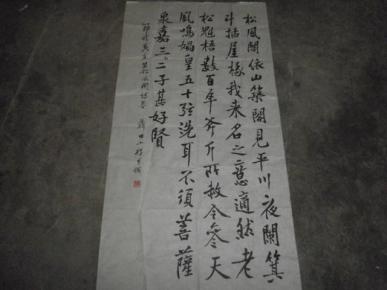 松風閣依山築閣見平川夜闌箕
斗插屋椽我来名之意適然老
松魁梧數百年斧斤所赦今參天
風鳴媧皇五十弦洗耳不須菩薩
泉嘉三二子甚好賢
節錄黃庭堅松風閣詩卷